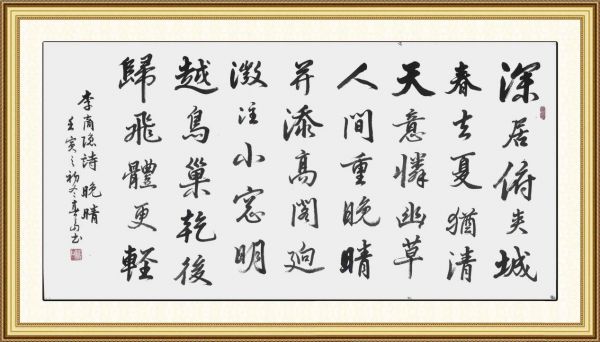 深居俯夹城
春去夏猶清
天意憐幽草
人間重晚晴
并添高閣迥
微注小窓明
越鳥巢乾後
歸飛體更軽
李商隐詩晚晴
壬寅之初冬山书